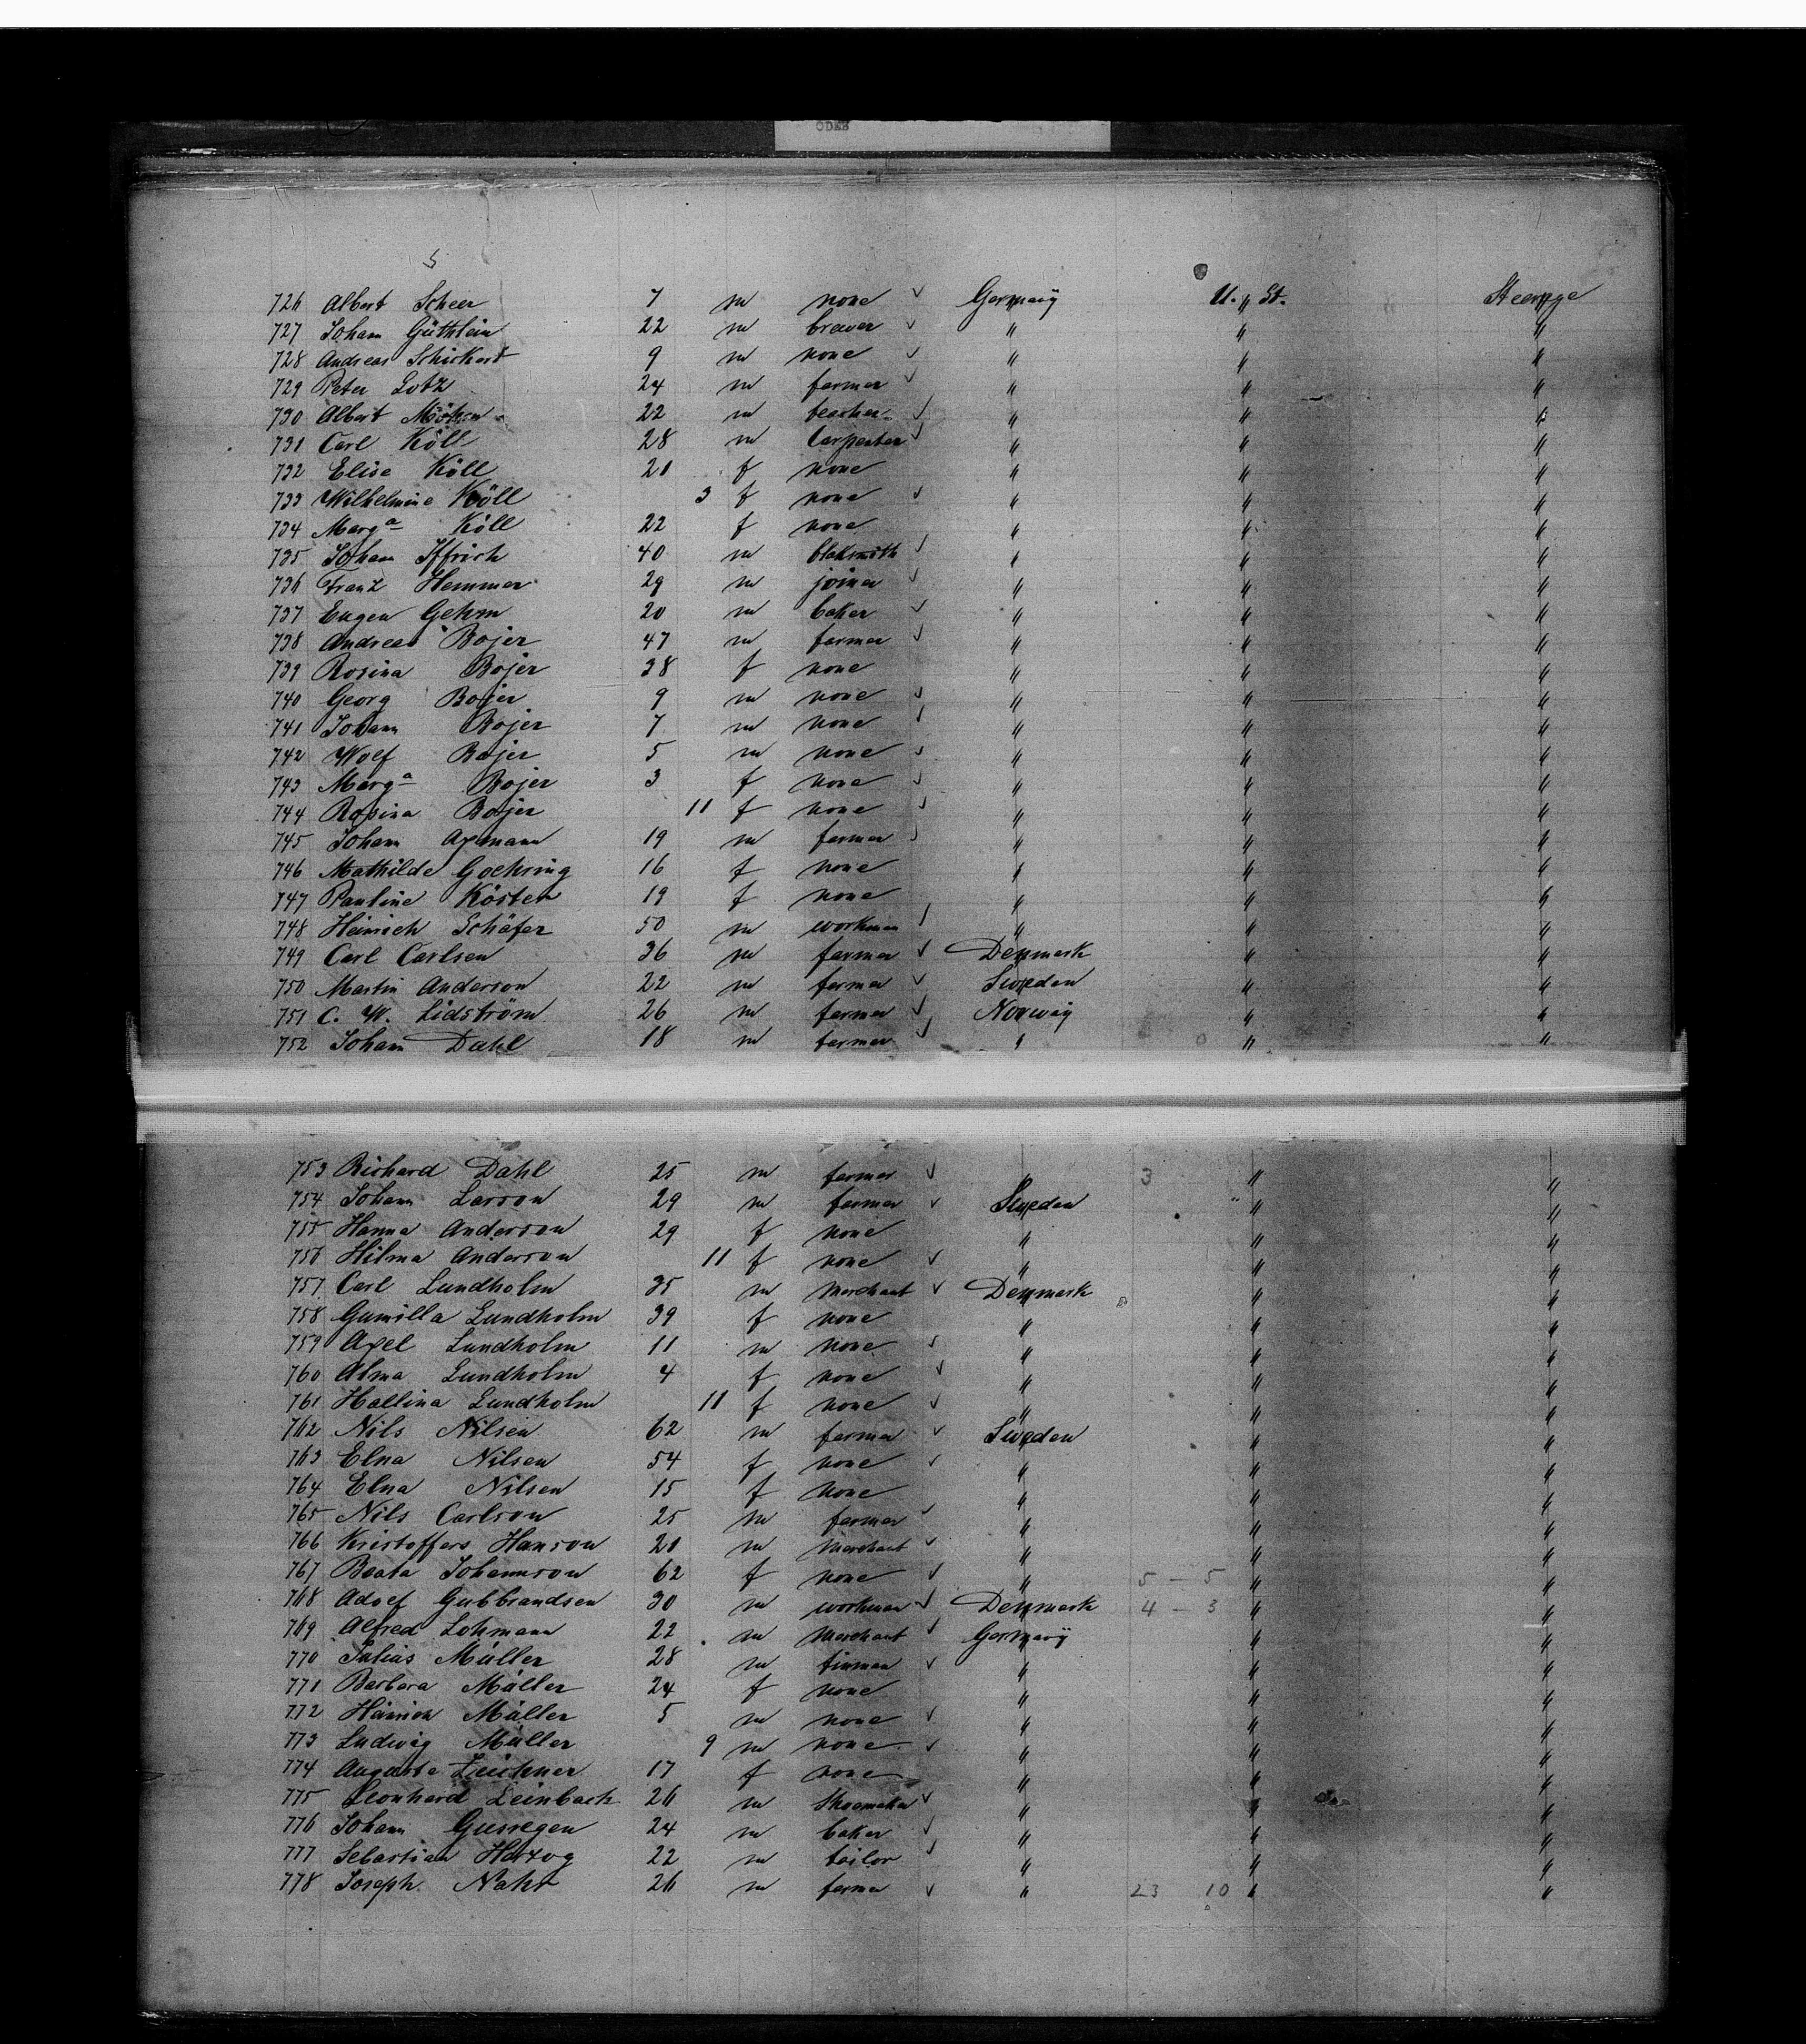 ODEB
5
726 Albert Scheer 7 m none ✓ Germany U. St. Steerage
727 Joham Güthlein 22 m brewer ✓ " " "
728 Andreas Schickert 9 m none ✓ " " "
729 Peter Lotz 24 m farmer ✓ " " "
730 Albert 22 m teacher ✓ " " "
731 Carl Köll 28 m Carpenter ✓ " " "
732 Elise Köll 21 f none " " "
733 Wilhelmine Köll 3 f none ✓ " " "
734 Marga Köll 22 f none " " "
735 Joham Iffrich 40 m blaksmith ✓ " " "
736 Franz Hemmer 29 m joiner ✓ " " "
737 Eugen Gehm 20 m baker ✓ " " "
738 Andreas Bojer 47 m farmer ✓ " " "
739 Rosina Bojer 38 f none " " "
740 Georg Bojer 9 m none ✓ " " "
741 Johann Bojer 7 m none ✓ " " "
742 Wolf Bojer 5 m none ✓ " " "
743 Marga Bojer 3 f none ✓ " " "
744 Rosina Bojer 11 f none ✓ " " "
745 Joham Axmann 19 m farmer ✓ " " "
746 Mathilde Goehring 16 f none " " "
747 Pauline Köster 19 f none " " "
748 Heinrich Schäfer 50 m workman ✓ " " "
749 Carl Carlsen 36 m farmer ✓ Denmark " "
750 Martin Anderson 22 m farmer ✓ Sweden " "
751 C. W. Lidström 26 m farmer ✓ Norway " "
752 Joham Dahl 18 m farmer ✓ " 0 " "
753 Richard Dahl 25 m farmer ✓ " 3 " "
754 Johann Larson 29 m farmer ✓ Sweden " "
755 Hanna Anderson 29 f none " " "
756 Hilma Anderson 11 f none ✓ " " "
757 Carl Lundholm 35 m merchant ✓ Denmark " "
758 Gumilla Lundholm 39 f none " " "
759 Axel Lundholm 11 m none ✓ " " "
760 Alma Lundholm 4 f none ✓ " " "
761 Hallina Lundholm 11 f none ✓ " " "
762 Nils Nilsen 62 m farmer ✓ Sweden " "
763 Elna Nilsen 54 f none ✓ " " "
764 Elna Nilsen 15 f none " " "
765 Nils Carlson 25 m farmer ✓ " " "
766 Kristoffers Hanson 20 m merchant ✓ " " "
767 Beata Johannson 62 f none ✓ " 5 - 5 " "
768 Adolf Gubbrandsen 30 m workman ✓ Denmark 4 - 3 " "
769 Alfred Lohmann 22 m merchant ✓ Germany " "
770 Julius Müller 28 m tinman ✓ " " "
771 Barbara Müller 24 f none " " "
772 Heinrich Müller 5 m none ✓ " " "
773 Ludwig Müller 9 m none ✓ " " "
774 Auguste 17 f none " " "
775 Leonhard Leinbach 26 m Shoemaker ✓ " " "
776 Johann Gussregen 24 m baker ✓ " " "
777 Sebastian Hertog 22 m tailor ✓ " " "
778 Joseph Nahr 26 m farmer ✓ " 23 10 " "